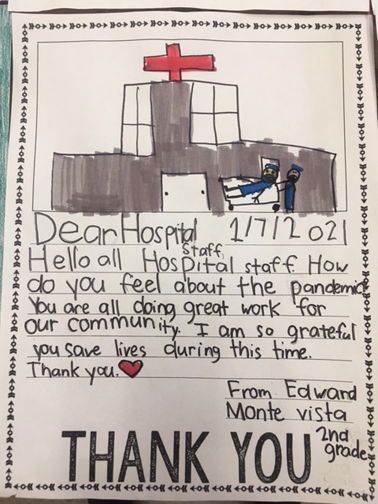 Dear Hospital 1/7/2021
staff,
Hello all Hospital staff. How
do you feel about the pandemic?
You are all doing great work for
our community. I am so grateful
you save lives during this time.
Thank you.
From Edward
Monte vista
2nd
grade
THANK YOU